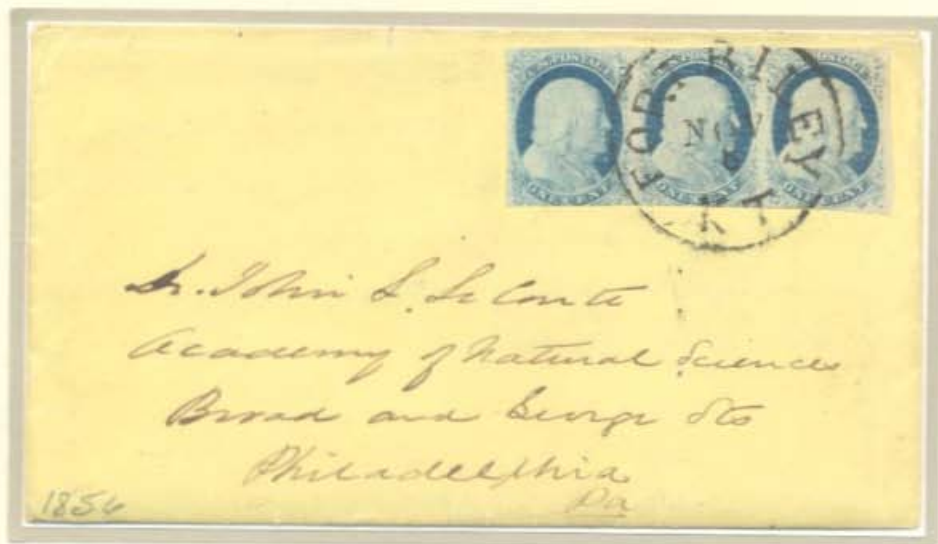 U.S. POSTAGE U.S. POSTAGE U.S. POSTAGE
ONE CENT ONE CENT ONE CENT
FORT RILEY
NOV
K T
Dr. John L. LeConte
Academy of Natural Sciences
Broad and George Sts
Philadelphia
Pa
1856